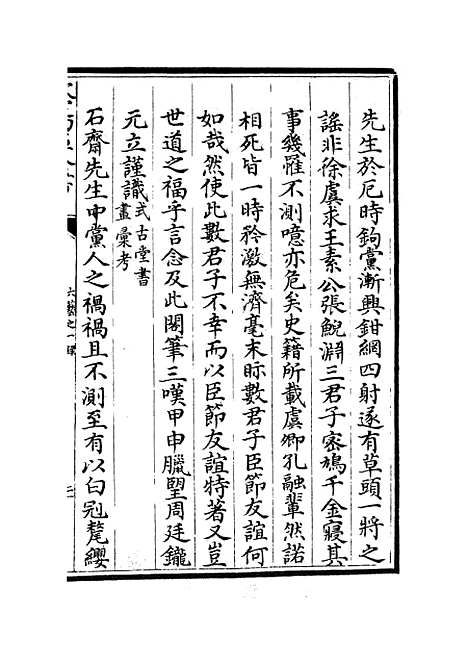 先生於厄時鉤黨漸興鉗網四射遂有草頭一將之
謡非徐虞求王素公張鯢淵三君子密鳩千金寢其
事幾罹不測噫亦危矣史籍所載虞卿孔融輩然諾
相死皆一時矜激無濟毫末眎數君子臣節友誼何
如哉然使此數君子不幸而以臣節友誼特著又豈
世道之福乎言念及此閣筆三嘆甲申臘朢周廷鑨
元立謹識式古堂書
畫彙考
石齋先生中黨人之禍禍且不測至有以白冠氂纓
六藝之一録